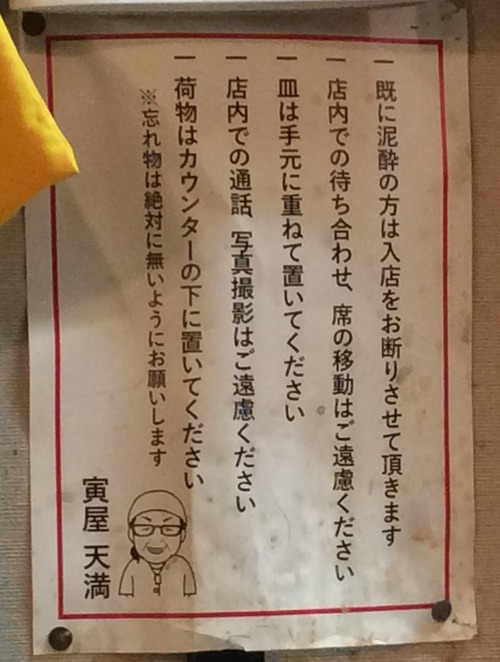 一 既に泥酔の方は入店をお断りさせて頂きます
一 店内での待ち合わせ、席の移動はご遠慮ください
一 皿は手元に重ねて置いてください
一 店内での通話、写真撮影はご遠慮ください
一 荷物はカウンターの下に置いてください
※忘れ物は絶対に無いようにお願いします
寅屋 天満